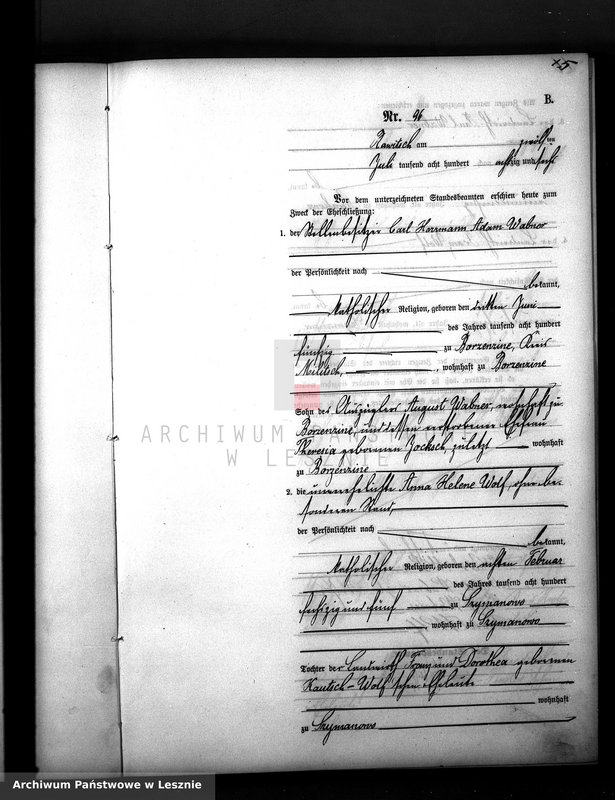 B.
Nr. 26
Rawitsch am zwölften
Juli tausend acht hundert achtzig und sechs
Vor dem unterzeichneten Standesbeamten erschien heute zum
Zweck der Eheschließung:
1. der Stellenbesitzer Carl Herrmann Adam Wabner
der Persönlichkeit nach
bekannt,
katholischer Religion, geboren den dritten Juni
des Jahres tausend acht hundert
fünfzig zu Borzenzine, Kreis
Militsch, wohnhaft zu Borzenzine
Sohn des Auszüglers August Wabner, wohnhaft zu
Borzenzine, und dessen verstorbenen Ehefrau
Theresia geborenen Jocksch, zuletzt wohnhaft
zu Borzenzine
2. die unverehelichte Anna Helene Wolf, ohne be-
sonderen Stand,
der Persönlichkeit nach
bekannt,
katholischer Religion, geboren den achten Februar
des Jahres tausend acht hundert
sechzig und fünf zu Szymanowo
wohnhaft zu Szymanowo
Tochter der Landwirth Franz und Dorothea geborenen
Kautsch-Wolf'schen Eheleute
wohnhaft
zu Szymanowo
ARCHIWUM PAŃSTWOWE
W LESZNIE
Archiwum Państwowe w Lesznie